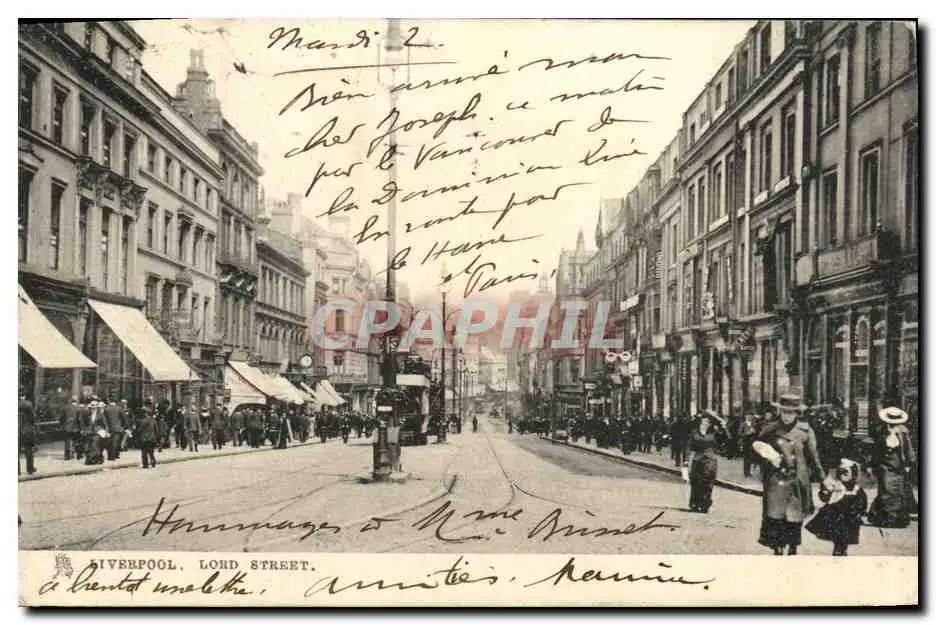 Mardi 2
Bien arrivé mon
cher Joseph. ce matin
par le Vancouver de
la Dominion Line
En route pour
le Havre
et Paris
CPAPHIL
Hommages à Mme Brunet
LIVERPOOL, LORD STREET.
à bientot une lettre. Amitiés.